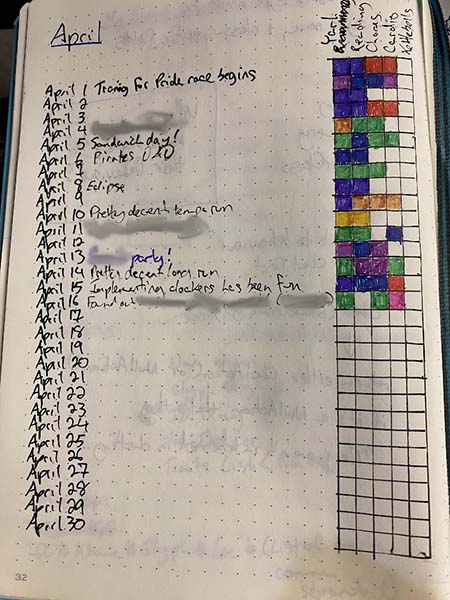 April
Reading
Chores
Cardio
Kettlebells
April 1 Training for Pride race begins
April 2
April 3
April 4
April 5 Sandwich day!
April 6 Pirates
April 7
April 8 Eclipse
April 9
April 10 Pretty decent tempo run
April 11
April 12
April 13 party!
April 14 Pretty decent long run
April 15 Implementing clockers has been fun
April 16 Found out
April 17
April 18
April 19
April 20
April 21
April 22
April 23
April 24
April 25
April 26
April 27
April 28
April 29
April 30
32